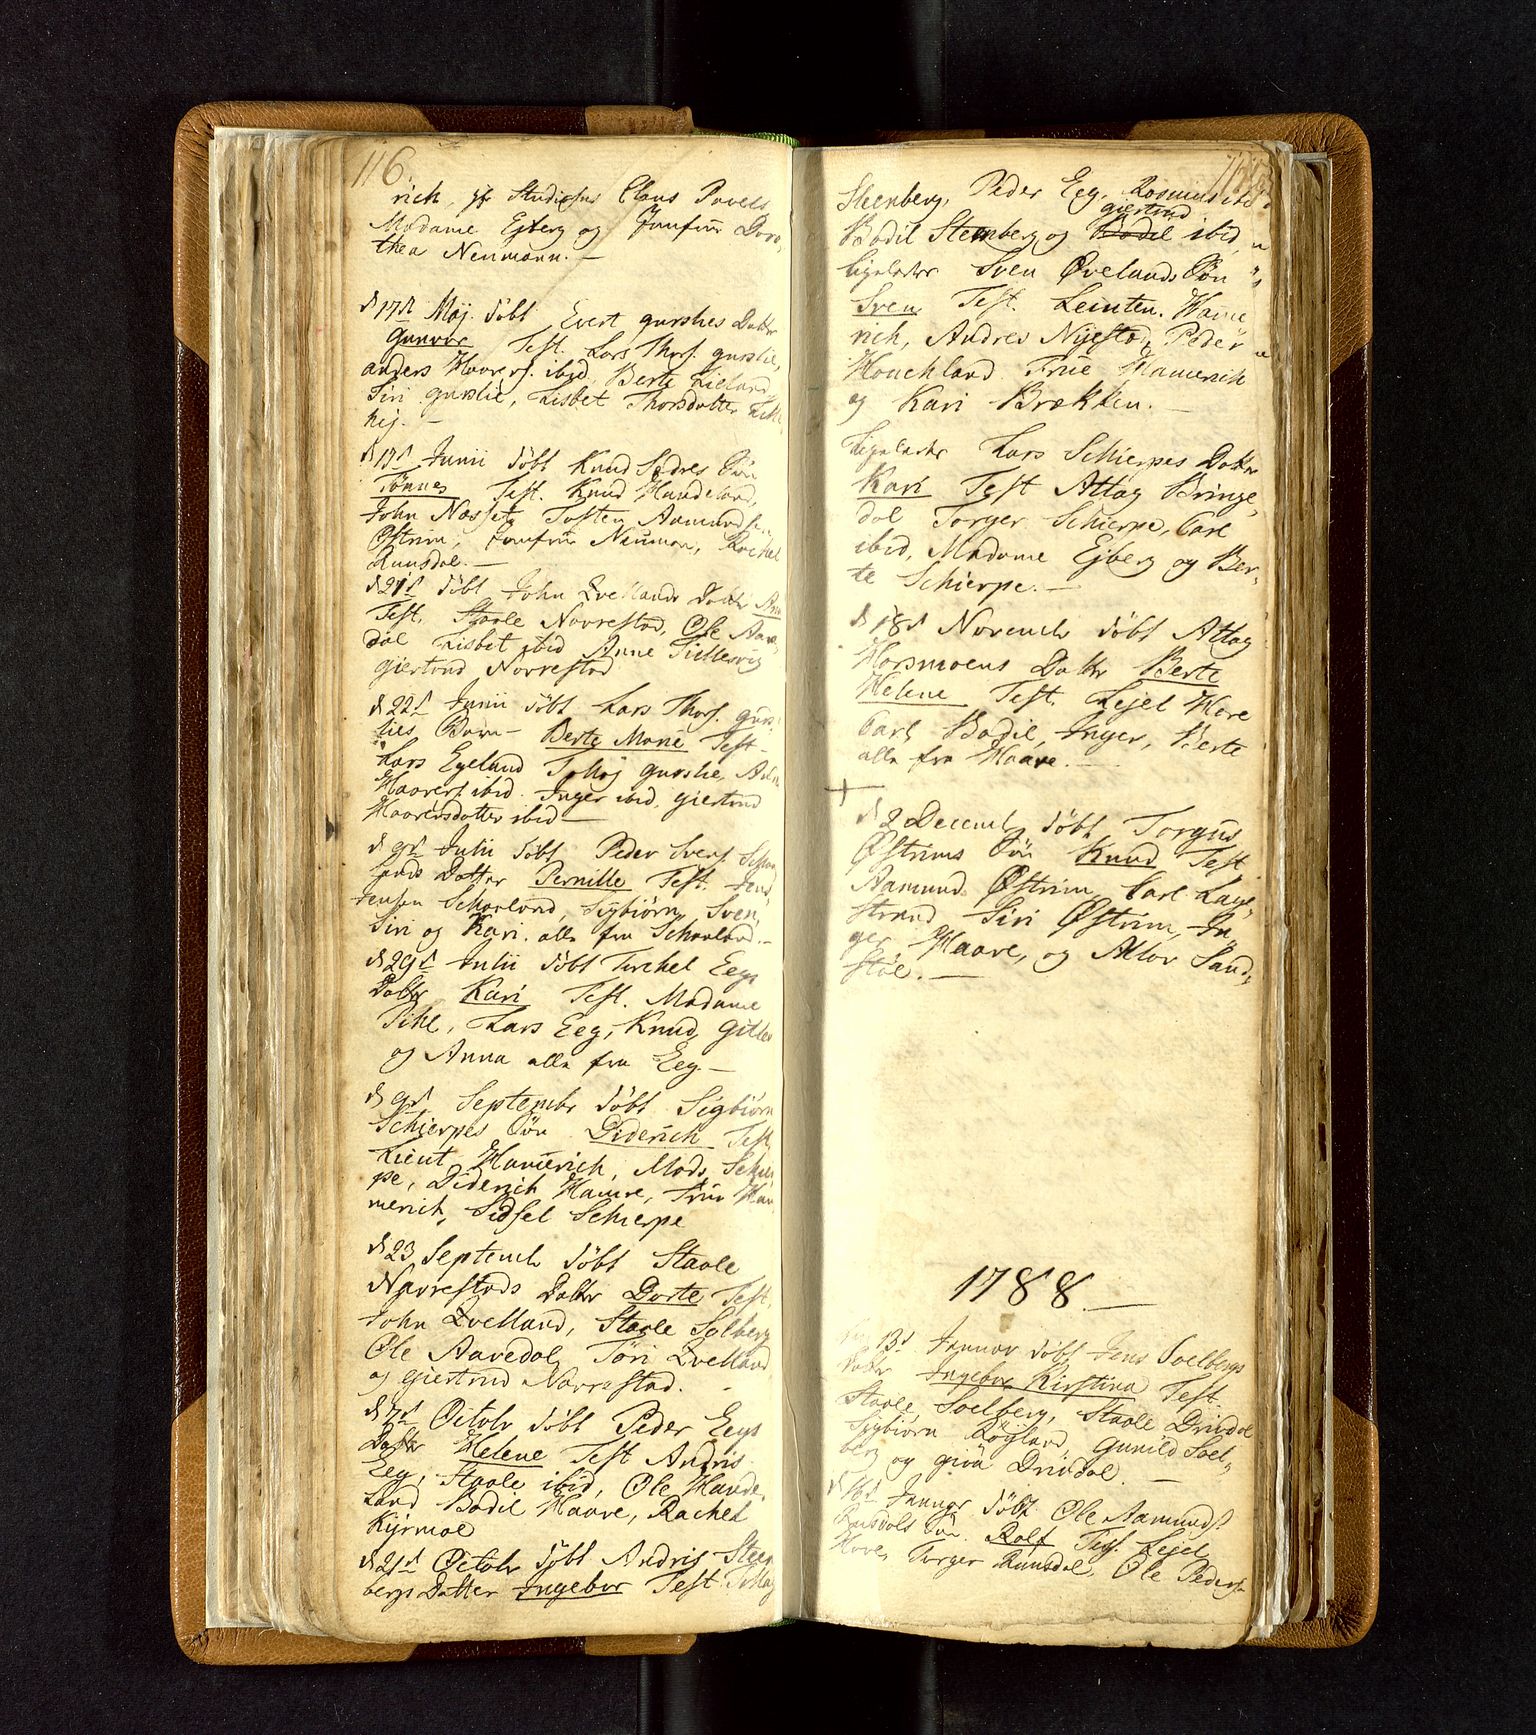 116.
rich, Studiosus Claus Povels
Madame Ejberg og Jomfrue Doro,
thea Neumann. —
d 17d Maj. döbt Evert gurslies Datter
Gunvor Test. Lars Thors. gurslie,
anders Haavers. ibid, Berte Lieland,
Siri gurslie, Lisbet Thorsdatter
hej. —
d 19d Junii döbt Knud Sön
Tönnes Test. Knud Haneland,
John Nasset, Tosten Aamundsen
Østrem, Jomfrue Neuman, Rachel
Ruusdal. —
d 21d döbt John Qvellands Datter
Test. Staale Novrestad, Ole Aave,
dal Lisbet ibid Anne
giertrud Novrestad
d 22d Junii döbt Lars Thors. gurs
lies Barn — Berte Marie Test —
Lars Egeland Tollag gurslie,
Haavers. ibid. Inger ibid, giertrud
Haaversdatter ibid —
d 9d Julii döbt Peder Svens.
lands Datter Pernille Test.
Jensen Schaaland, Sigbiörn, Sven,
Siri og Kari. alle fra Schaaland. —
d 29d Julii döbt Torchel Eegs
Datter Kari Test. Madame
Pihl, Lars Eeg, Knud,
og Anna alle fra Eeg —
d 9d Septembr döbt Sigbiörn
Schierpes Sön Diderich Test
Lieut Hamerich, Mads Schier
pe, Diderich Hamre, Frue Ham
merich, Sidsel Schierpe
d 23 Septembr döbt Staale
Navrestads Datter Dorte Test.
John Qvelland, Staale Solberg
Ole Aavedal, Töri Qvelland
og giertrud Novrestad. —
d 7d Octobr döbt Peder Eegs
Datter Helene Test Andris
Eeg, Staale ibid, Ole Hande,
land Bodil Haave, Rachel
Kijrmoe
d 21d Octobr döbt Andris Steen
bergs Datter Ingebor Test. Tollag
Steenberg, Peder Eeg, Rasmus ibid
giertrud
Bodil Steenberg og Bodil ibid,
ligeledes Sven Øvelands Sön
Sven Test. Leinten. Hame
rich, Andres Nijestad, Peder
Houchland Frue Hamerich
og Kari Brækken. —
Ligeledes Lars Schierpes Datter
Kari Test Attlag Bringe,
dal Torger Schierpe, Carl
ibid, Madame Ejberg og Ber,
te Schierpe. —
d 18d Novembr döbt Attlag
Horsmoens Datter Berte
Helene Test. Lejel Hove
Carl Bodil, Inger, Berte
alle fra Haave. —
d 2 Decembr döbt Torgius
Østrims Sön Knud Test
Aamund Østrim, Carl Lage,
strand Siri Østrim, In
ger Haave, og Attlov Sand,
stöl. —
1788. —
13d Januar döbt Jens Soelbergs
Datter Ingebor Kirstina Test
Staale Soelberg, Staale Drivdal
Sigbiörn Rögland, Gunild Soel,
berg og giva Drivdal. —
d 16d Januar döbt Ole Aamunds.
Ruusdals Sön. Rolf Test. Lejel
Hove, Torger Ruusdal, Ole Peders.